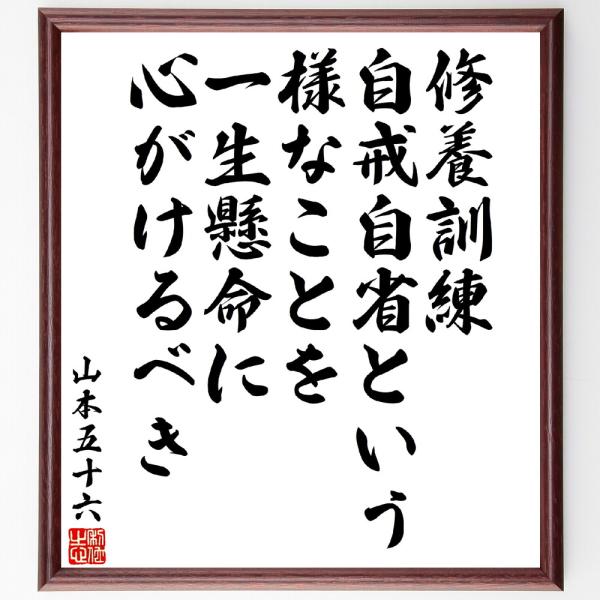 修養訓練
自戒自省という
様なことを
一生懸命に
心がけるべき
山本五十六